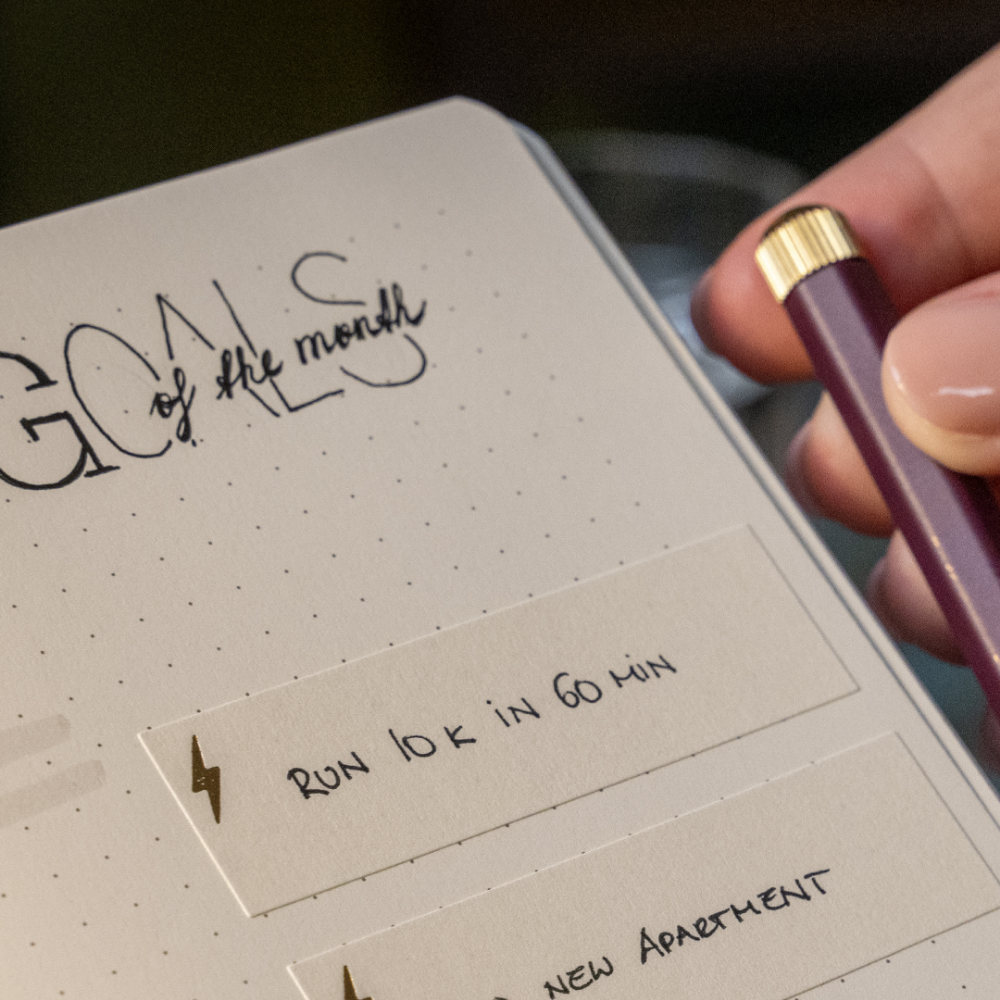 GOALS
of the month
RUN 10 K IN 60 MIN
NEW APARTMENT